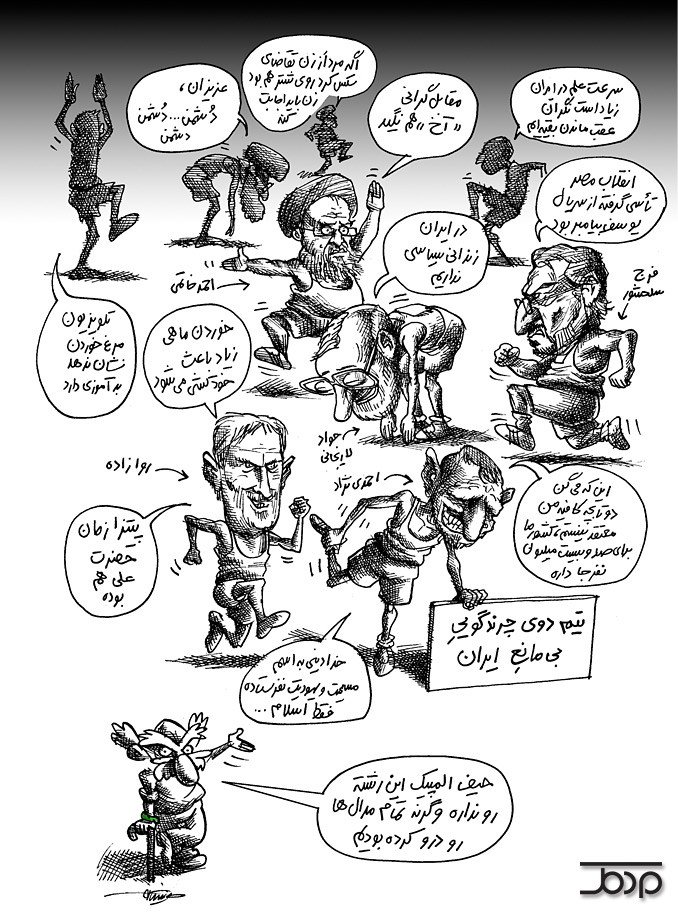 اگه مرد از زن تقاضای
سکس کرد روی شتر هم بود
زن باید اجابت
کنه
عزیزان،
دشمن... دشمن
دشمن
مقابل گرانی
"آخ" هم نگید
سرعت علم در ایران
زیاد است نگران
عقب ماندن بقیه‌ایم
انقلاب مصر
تأسی گرفته از سریال
یوسف پیامبر بود
در ایران
زندانی سیاسی
نداریم
احمد خاتمی
فرج
سلحشور
تلویزیون
مرغ خوردن
نشان ندهد
بدآموزی دارد
خوردن ماهی
زیاد باعث
خودکشی می‌شود
جواد
لاریجانی
روازاده
احمدی نژاد
پیتزا زمان
حضرت
علی هم
بوده
این که می‌گن
دو تا بچه کافیه من
معتقد نیستم، کشور ما
برای صد و بیست میلیون
نفر جا داره
تیم دوی چرندگویی
بی مانع ایران
خدا دینی به اسم
مسیحیت و یهودیت نفرستاده
فقط اسلام...
حیف المپیک این رشته
رو نداره وگرنه تمام مدال‌ها
رو درو کرده بودیم
مردمک